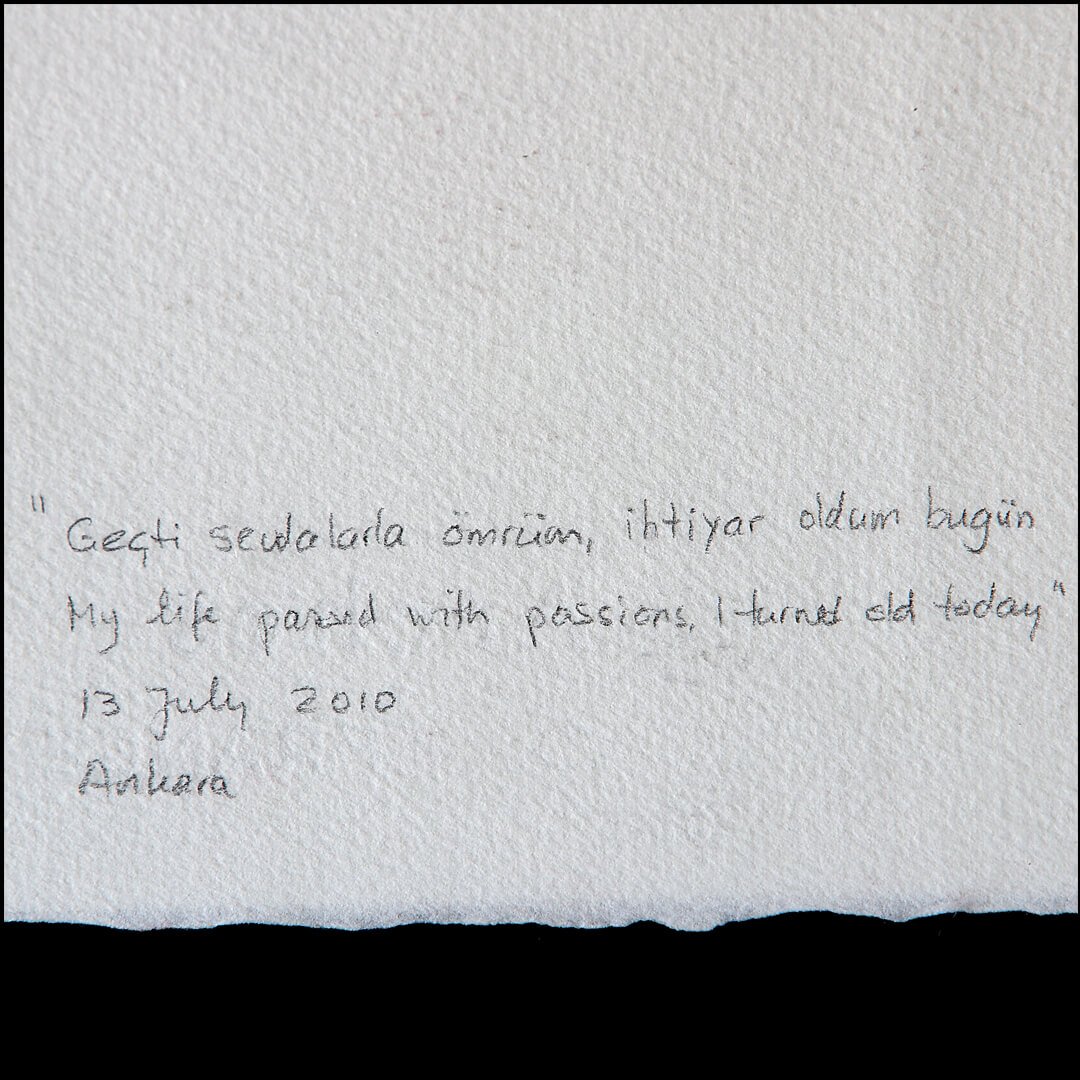 "Geçti sevdalarla ömrüm, ihtiyar oldum bugün
My life passed with passions, I turned old today"
13 July 2010
Ankara